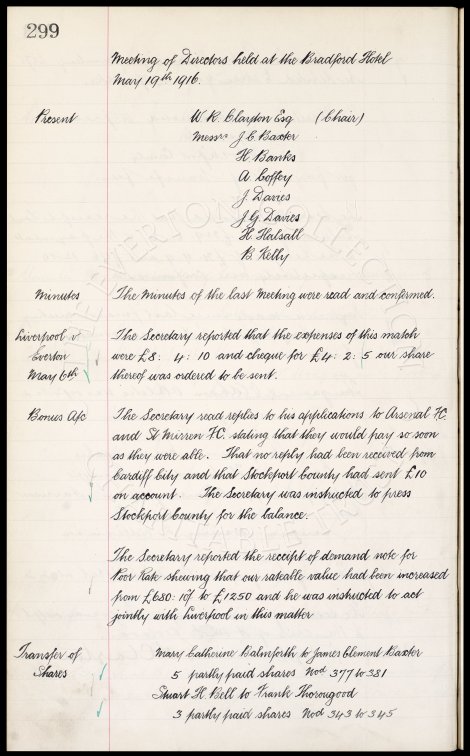 299
Meeting of Directors held at the Bradford Hotel
May 19th 1916.
Present W. R. Clayton Esq (Chair)
Messrs J. C. Baxter
H. Banks
A. Coffey
J. Davies
J. G. Davies
H. Halsall
B. Kelly
Minutes The Minutes of the last Meeting were read and confirmed.
Liverpool v The Secretary reported that the expenses of this match
Everton were £8: 4: 10 and cheque for £4: 2: 5 our share
May 6th thereof was ordered to be sent.
Bonus A/c The Secretary read replies to his applications to Arsenal F.C.
and St Mirren F.C. stating that they would pay so soon
as they were able. That no reply had been received from
Cardiff City and that Stockport County had sent £10
on account. The Secretary was instructed to press
Stockport County for the balance.
The Secretary reported the receipt of demand note for
Poor Rate shewing that our rateable value had been increased
from £680: to £1250 and he was instructed to act
jointly with Liverpool in this matter
Transfer of Mary Catherine Balmforth to James Clement Baxter
Shares 5 partly paid shares Nod 377 to 381
Stuart H. Bell to Frank Thorougood
3 partly paid shares Nod 343 to 345
THE EVERTON COLLECTION
CHARITABLE TRUST